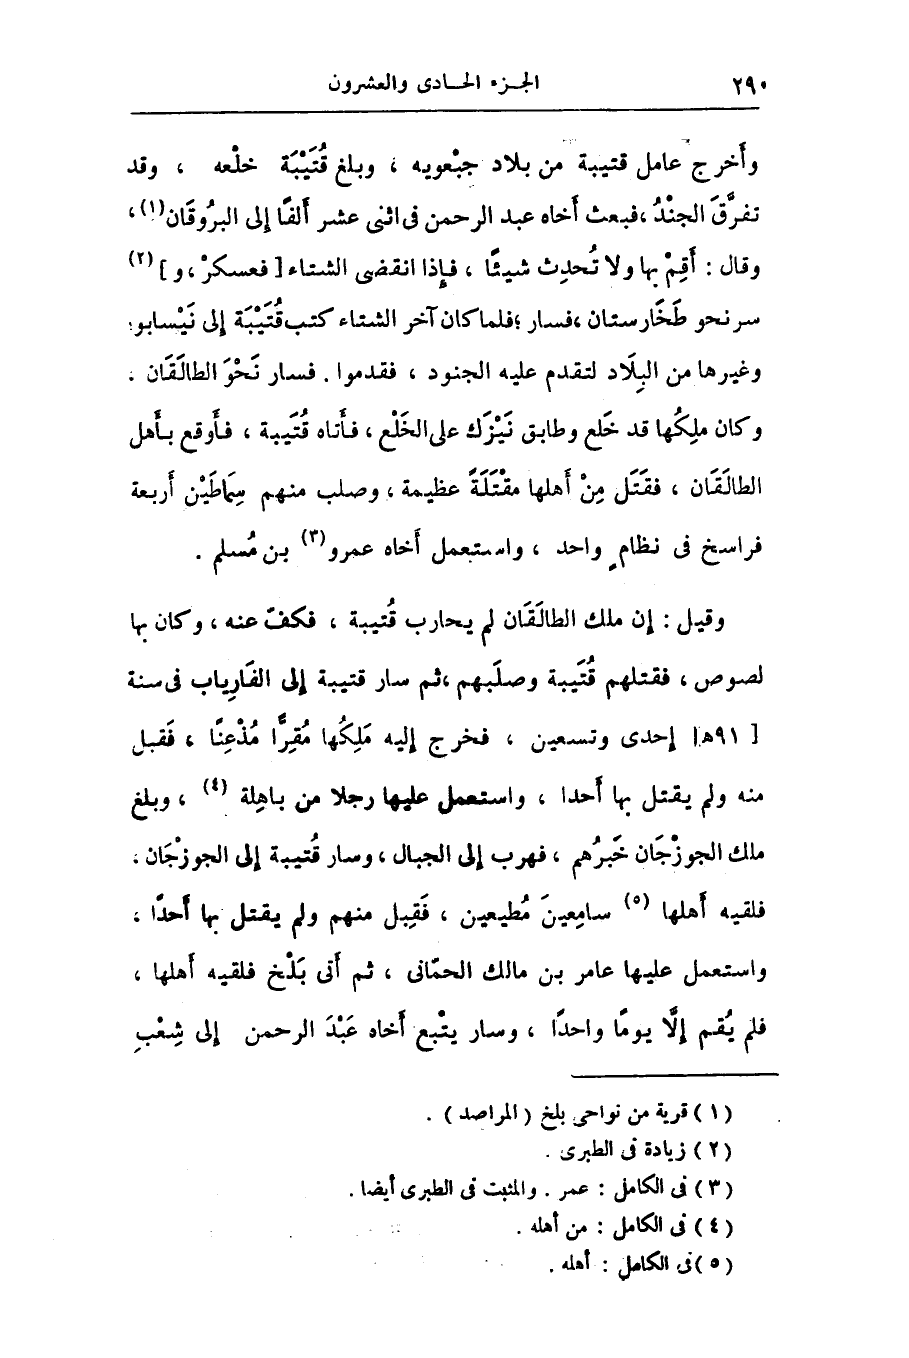 ٢٩٠ الجـزء الحـادى والعشرون
وأَخرج عامل قتيبة من بلاد جبْعويه ، وبلغ قُتَيْبَة خلْعه ، وقد
تفرَّقَ الجنْدُ ،فبعث أَخاه عبد الرحمن فى اثنى عشر أَلفًا إلى البرُوقَان(١)،
وقال : أَقِمْ بها ولا تُحدِث شيئًا ، فإِذا انقضى الشتاء [ فعسكرْ ، و ] (٢)
سر نحو طَخَارستان ،فسار ؛فلما كان آخر الشتاء كتب قُتَيْبَة إلى نَيْسابور
وغيرها من البِلَاد لتقدم عليه الجنود ، فقدموا . فسار نَحْوَ الطالَقَان .
وكان ملِكُها قد خَلع وطابق نَيْزَك على الخَلْع ، فأَتاه قُتَيبة ، فأَوقع بأَهل
الطالَقَان ، فقَتَل مِنْ أَهلها مقْتَلَةً عظيمة ، وصلب منهم سِمَاطَيْن أَربعة
فراسخ فى نظامٍ واحد ، واستعمل أَخاه عمرو(٣) بن مُسلم .
وقيل : إن ملك الطالَقَان لم يحارب قُتيبة ، فكفّ عنه ، وكان بها
لصوص ، فقتلهم قُتَيبة وصلَبهم ،ثم سار قتيبة إلى الفَارِياب فى سنة
[ ٩١هـ] إحدى وتسعين ، فخرج إليه مَلِكُها مُقِرًّا مُذْعِنًا ، فَقبل
منه ولم يقتل بها أَحدا ، واستعمل عليها رجلا من باهِلة (٤) ، وبلغ
ملك الجوزْجَان خَبرُهم ، فهرب إلى الجبال ، وسار قُتيبة إلى الجوزْجَان ،
فلقيه أَهلها (٥) سامِعينَ مُطيعين ، فَقِبل منهم ولم يقتل بها أَحدًا ،
واستعمل عليها عامر بن مالك الحمّانى ، ثم أَتى بَلْخ فلقيه أَهلها ،
فلم يُقم إلَّا يومًا واحدًا ، وسار يتْبع أَخاه عَبْدَ الرحمن إلى شِعْبِ
( ١ ) قرية من نواحى بلخ ( المراصد ) .
( ٢ ) زيادة فى الطبرى .
( ٣ ) فى الكامل : عمر . والمثبت فى الطبرى أيضا .
( ٤ ) فى الكامل : من أهله .
( ٥ ) فى الكامل : أهله .